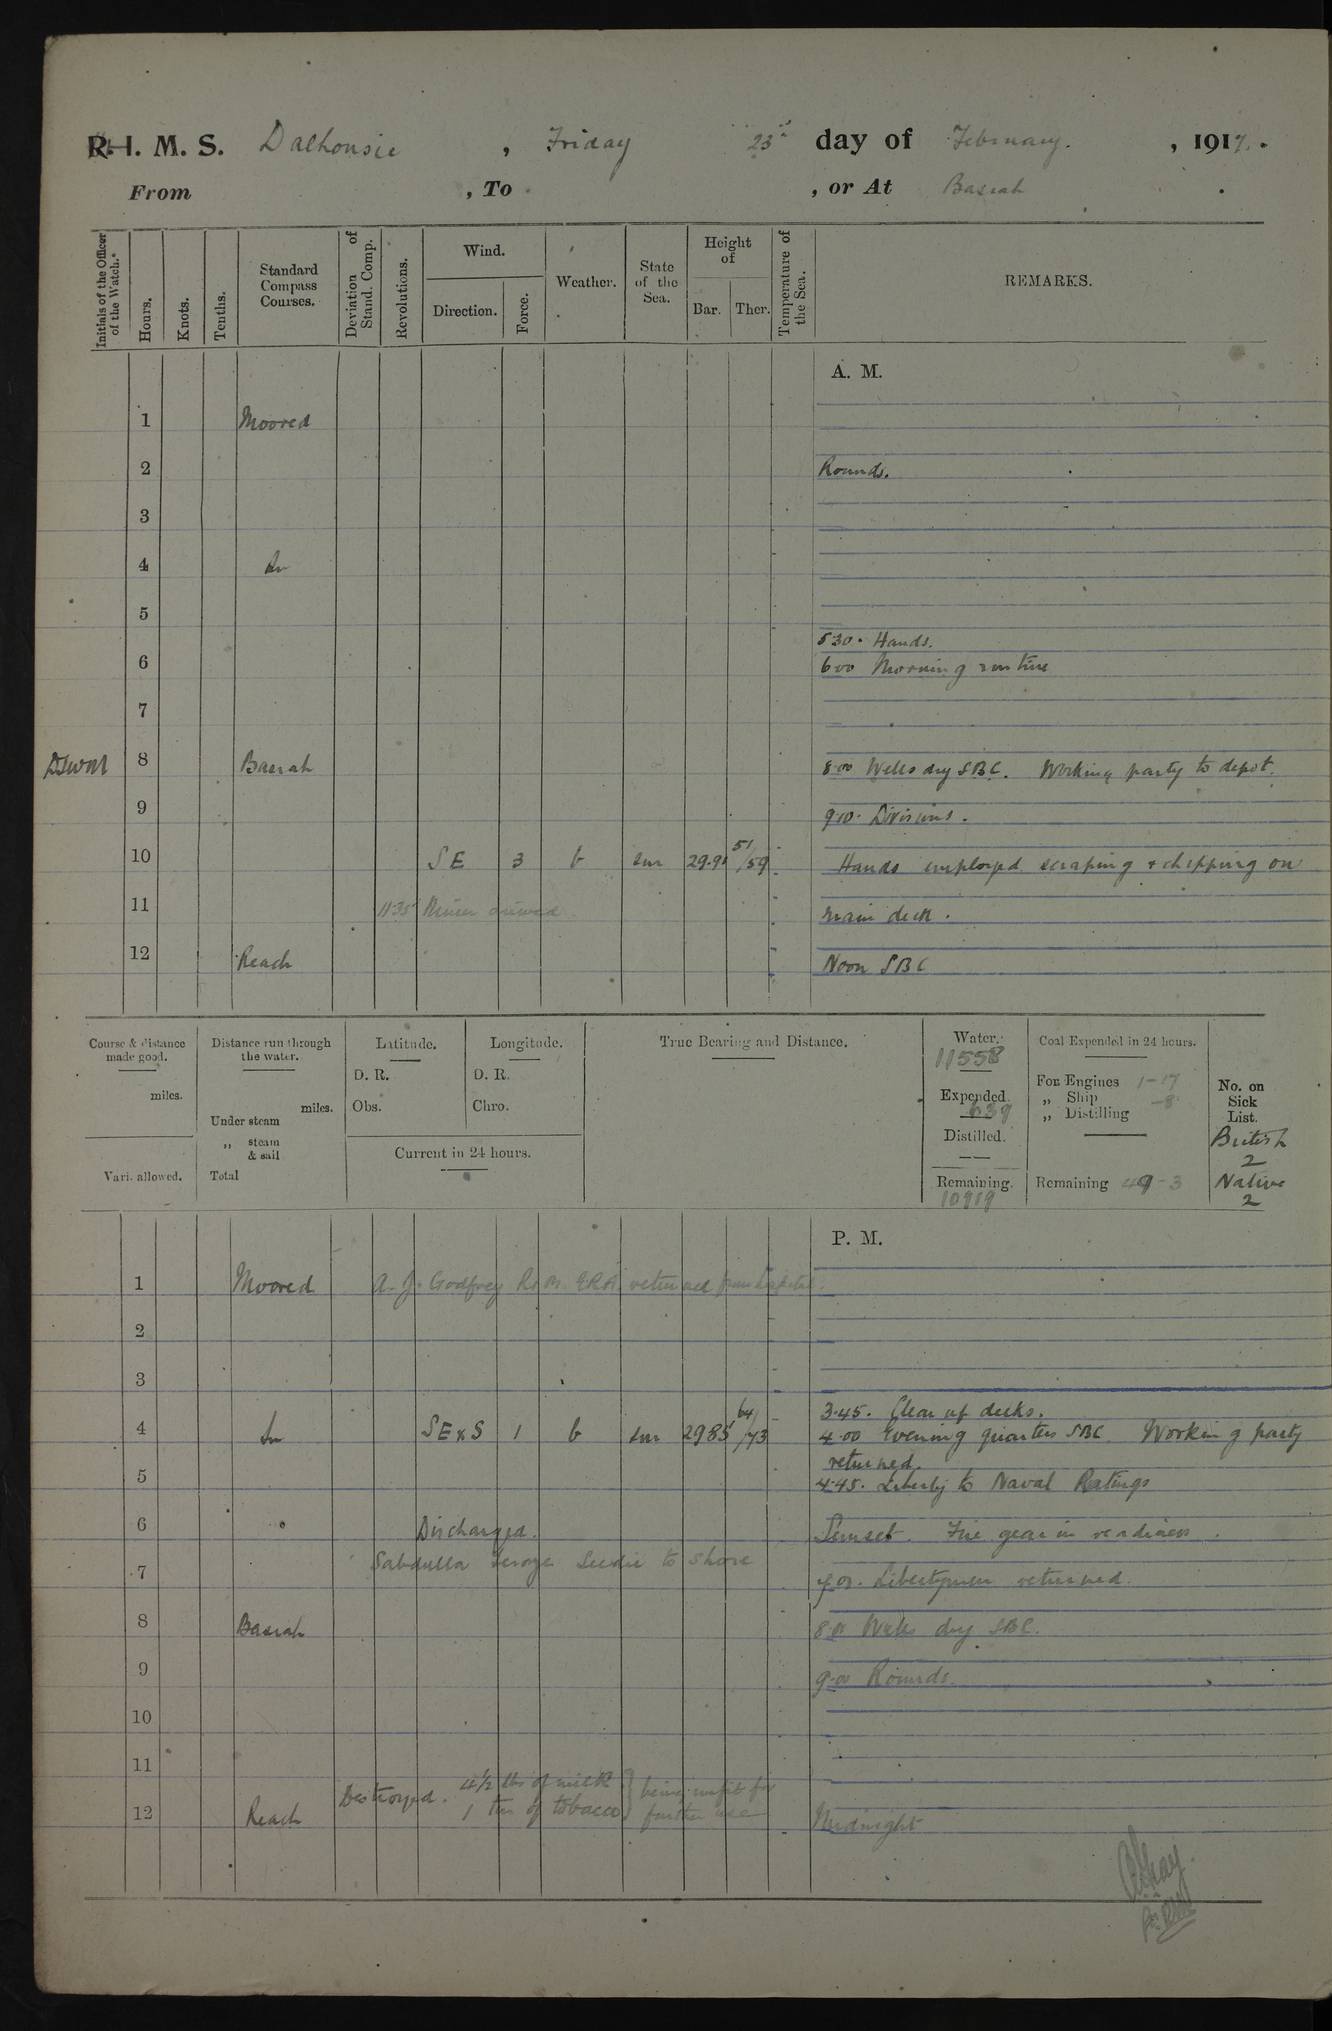 R. I. M. S. Dalhousie , Friday 23rd day of February. , 1917.
From , To , or At Basrah
Initials of the Officer of the Watch.*
Hours.
Knots.
Tenths.
Standard Compass Courses.
Deviation of Stand. Comp.
Revolutions.
Wind.
Direction.
Force.
Weather.
State of the Sea.
Height of
Bar.
Ther.
Temperature of the Sea.
REMARKS.
A. M.
1 Moored
2 Rounds.
3
4 In
5
5.30. Hands.
6 6.00 Morning routine
7
8 Basrah 8.00 Wells dry SBC. Working party to depot.
9 9.10. Divisions.
10 SE 3 b sm 29.91 51/59 Hands employed scraping & chipping on
11 11.35 arrived main deck.
12 Reach Noon SBC
Course & distance made good.
miles.
Vari. allowed.
Distance run through the water.
miles.
Under steam
„ steam & sail
Total
Latitude.
D. R.
Obs.
Longitude.
D. R.
Chro.
Current in 24 hours.
True Bearing and Distance.
Water.
11558
Expended.
639
Distilled.
Remaining.
10919
Coal Expended in 24 hours.
For Engines 1-17
„ Ship -8
„ Distilling
Remaining 49-3
No. on Sick List.
British
2
Native
2
P. M.
1 Moored A. J. Godfrey R.N. ERA returned from hospital.
2
3
3.45. Clear up decks.
4 In SExS 1 b sm 29.85 64/73 4.00 Evening quarters SBC Working party
returned.
5 4.45. Liberty to Naval Ratings
6 Discharged. Sunset. Fire gear in readiness.
Seedie to shore
7 7.00. Libertymen returned.
8 Basrah 8.00 Wells dry SBC.
9 9.00 Rounds.
10
11
Destroyed. 4½ lbs of milk } being unfit for
12 Reach 1 tin of tobacco } further use Midnight